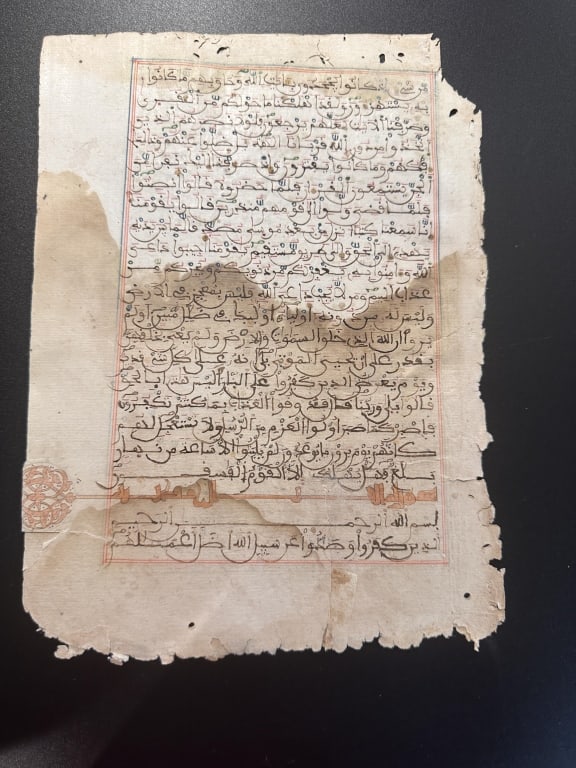 من شيء إذ كانوا يجحدون بآيات الله وحاق بهم ما كانوا
به يستهزءون ولقد أهلكنا ما حولكم من القرى
وصرفنا الآيات لعلهم يرجعون فلولا نصرهم الذين
اتخذوا من دون الله قربانا آلهة بل ضلوا عنهم وذلك
إفكهم وما كانوا يفترون وإذ صرفنا إليك نفرا من
الجن يستمعون القرءان فلما حضروه قالوا أنصتوا
فلما قضي ولوا إلى قومهم منذرين قالوا يا قومنا
إنا سمعنا كتابا أنزل من بعد موسى مصدقا لما بين يديه
يهدي إلى الحق وإلى طريق مستقيم يا قومنا أجيبوا داعي
الله وءامنوا به يغفر لكم من ذنوبكم ويجركم من
عذاب أليم ومن لا يجب داعي الله فليس بمعجز في الأرض
وليس له من دونه أولياء أولئك في ضلل مبين أولم
يروا أن الله الذي خلق السموت والأرض ولم يعي بخلقهن
بقدر على أن يحيي الموتى بلى إنه على كل شيء قدير
ويوم يعرض الذين كفروا على النار أليس هذا بالحق
قالوا بلى وربنا قال فذوقوا العذاب بما كنتم تكفرون
فاصبر كما صبر أولوا العزم من الرسل ولا تستعجل لهم
كأنهم يوم يرون ما يوعدون لم يلبثوا إلا ساعة من نهار
بلغ فهل يهلك إلا القوم الفسقون
بسم الله الرحمن الرحيم
الذين كفروا وصدوا عن سبيل الله أضل أعملهم